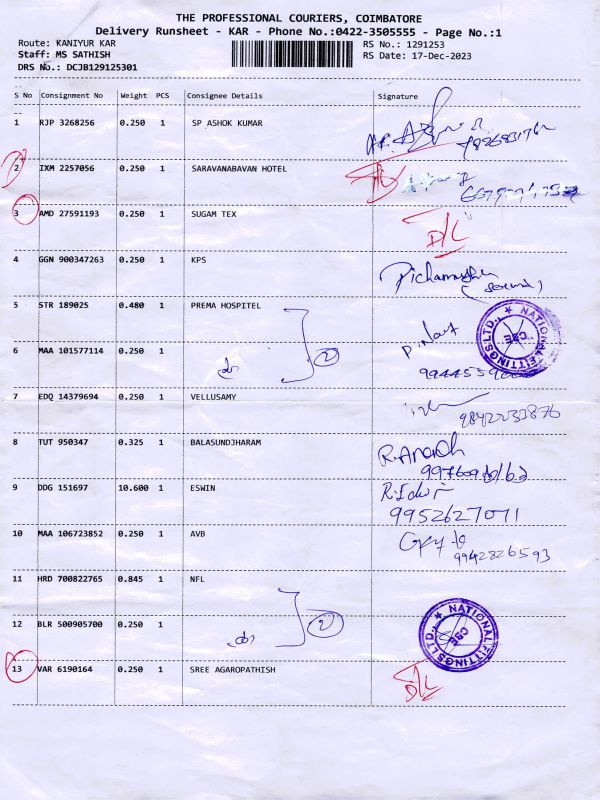 THE PROFESSIONAL COURIERS, COIMBATORE
Delivery Runsheet - KAR - Phone No.:0422-3505555 - Page No.:1
Route: KANIYUR KAR RS No.: 1291253
Staff: MS SATHISH RS Date: 17-Dec-2023
DRS No.: DCJB129125301
S No Consignment No Weight PCS Consignee Details Signature
1 RJP 3268256 0.250 1 SP ASHOK KUMAR
2 IXM 2257056 0.250 1 SARAVANABAVAN HOTEL
3 AMD 27591193 0.250 1 SUGAM TEX D/L
4 GGN 900347263 0.250 1 KPS
5 STR 189025 0.480 1 PREMA HOSPITEL
NATIONAL FITTINGS LTD., CBE
6 MAA 101577114 0.250 1 2
7 EDQ 14379694 0.250 1 VELLUSAMY
9842233876
8 TUT 950347 0.325 1 BALASUNDJHARAM R.Anandh
9 DDG 151697 10.600 1 ESWIN
9952627071
10 MAA 106723852 0.250 1 AVB
9942826593
11 HRD 700822765 0.845 1 NFL
12 BLR 500905700 0.250 1 2
NATIONAL FITTINGS LTD., CBE
13 VAR 6190164 0.250 1 SREE AGAROPATHISH D/L